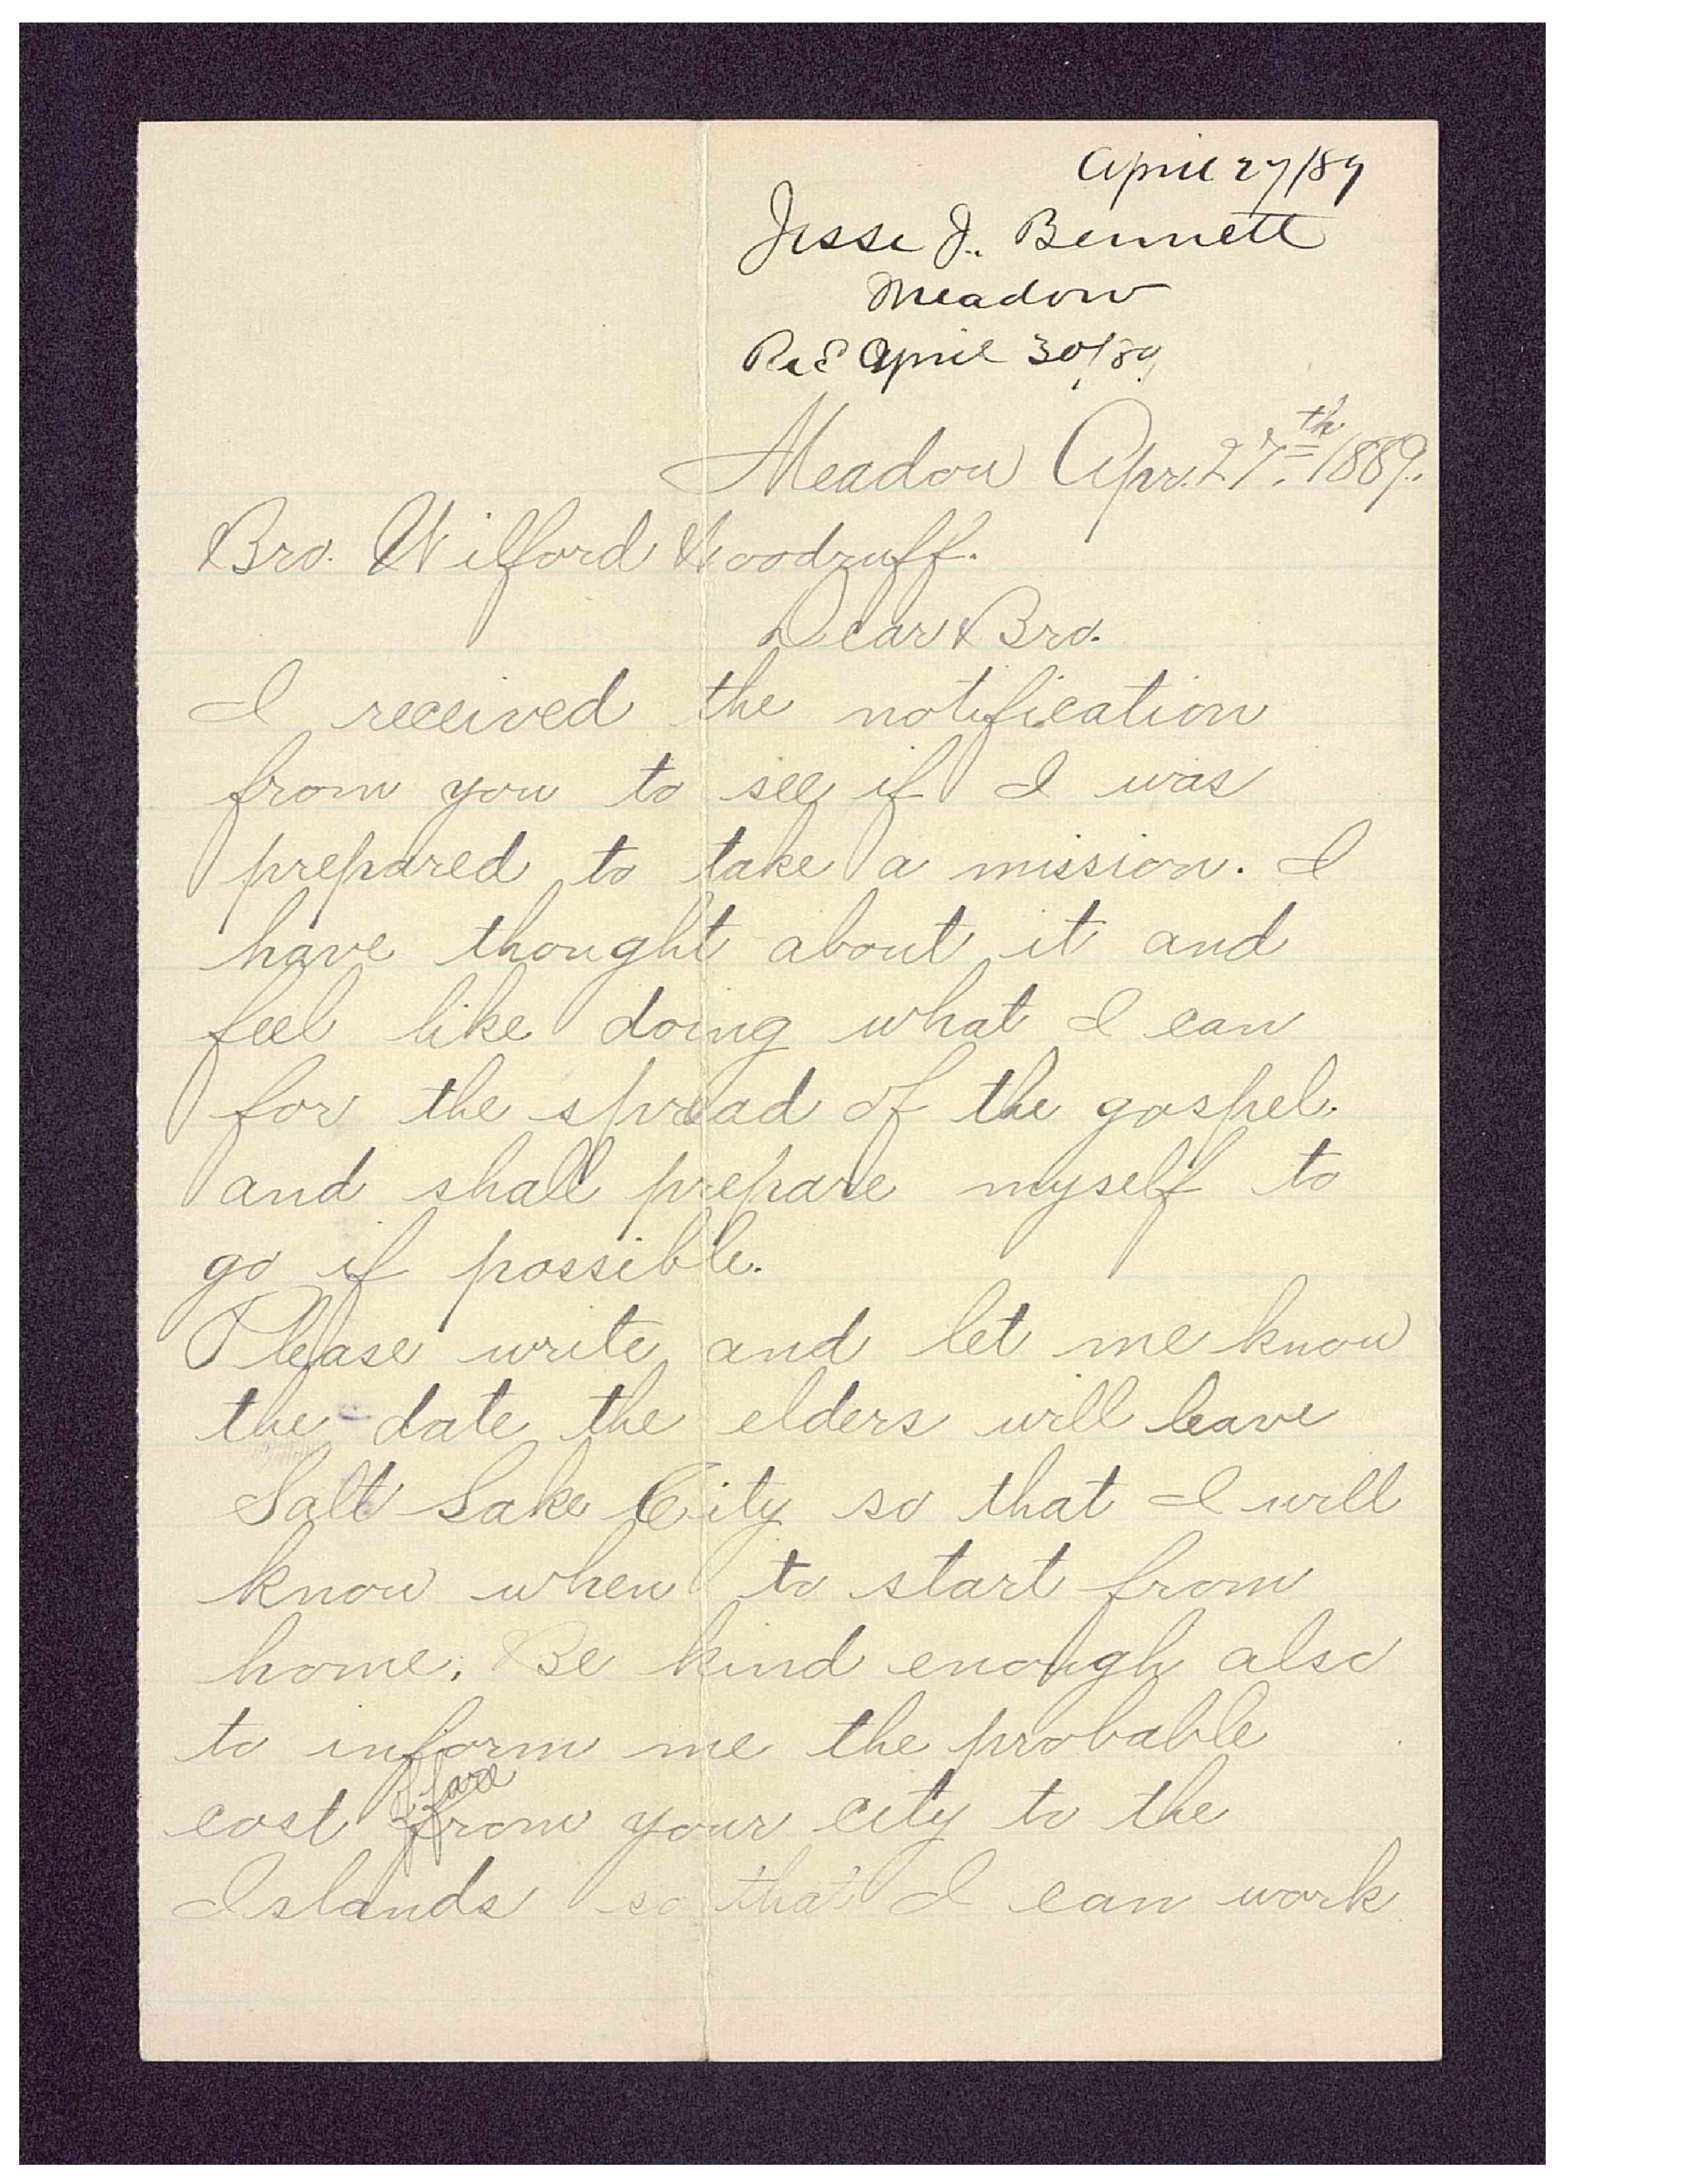 April 27/89
Jesse J. Bennett
Meadow
Rec April 30/89
Meadow Apr. 27th, 1889.
Bro. Wilford Woodruff.
Dear Bro.
I received the notification
from you to see if I was
prepared to take a mission. I
have thought about it and
feel like doing what I can
for the spread of the gospel.
and shall prepare myself to
go if possible.
Please write and let me know
the date the elders will leave
Salt Lake City so that I will
know when to start from
home. Be kind enough also
to inform me the probable
of fare
cost from your city to the
Islands so that I can work